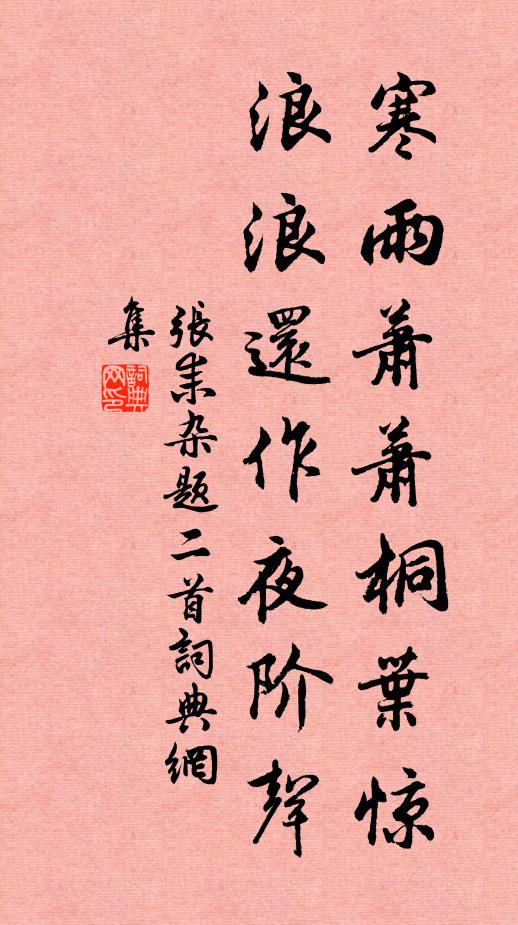 寒雨萧萧桐葉惊
浪浪還作夜阶聲
張耒杂题二首詞典網
集
詞典网印